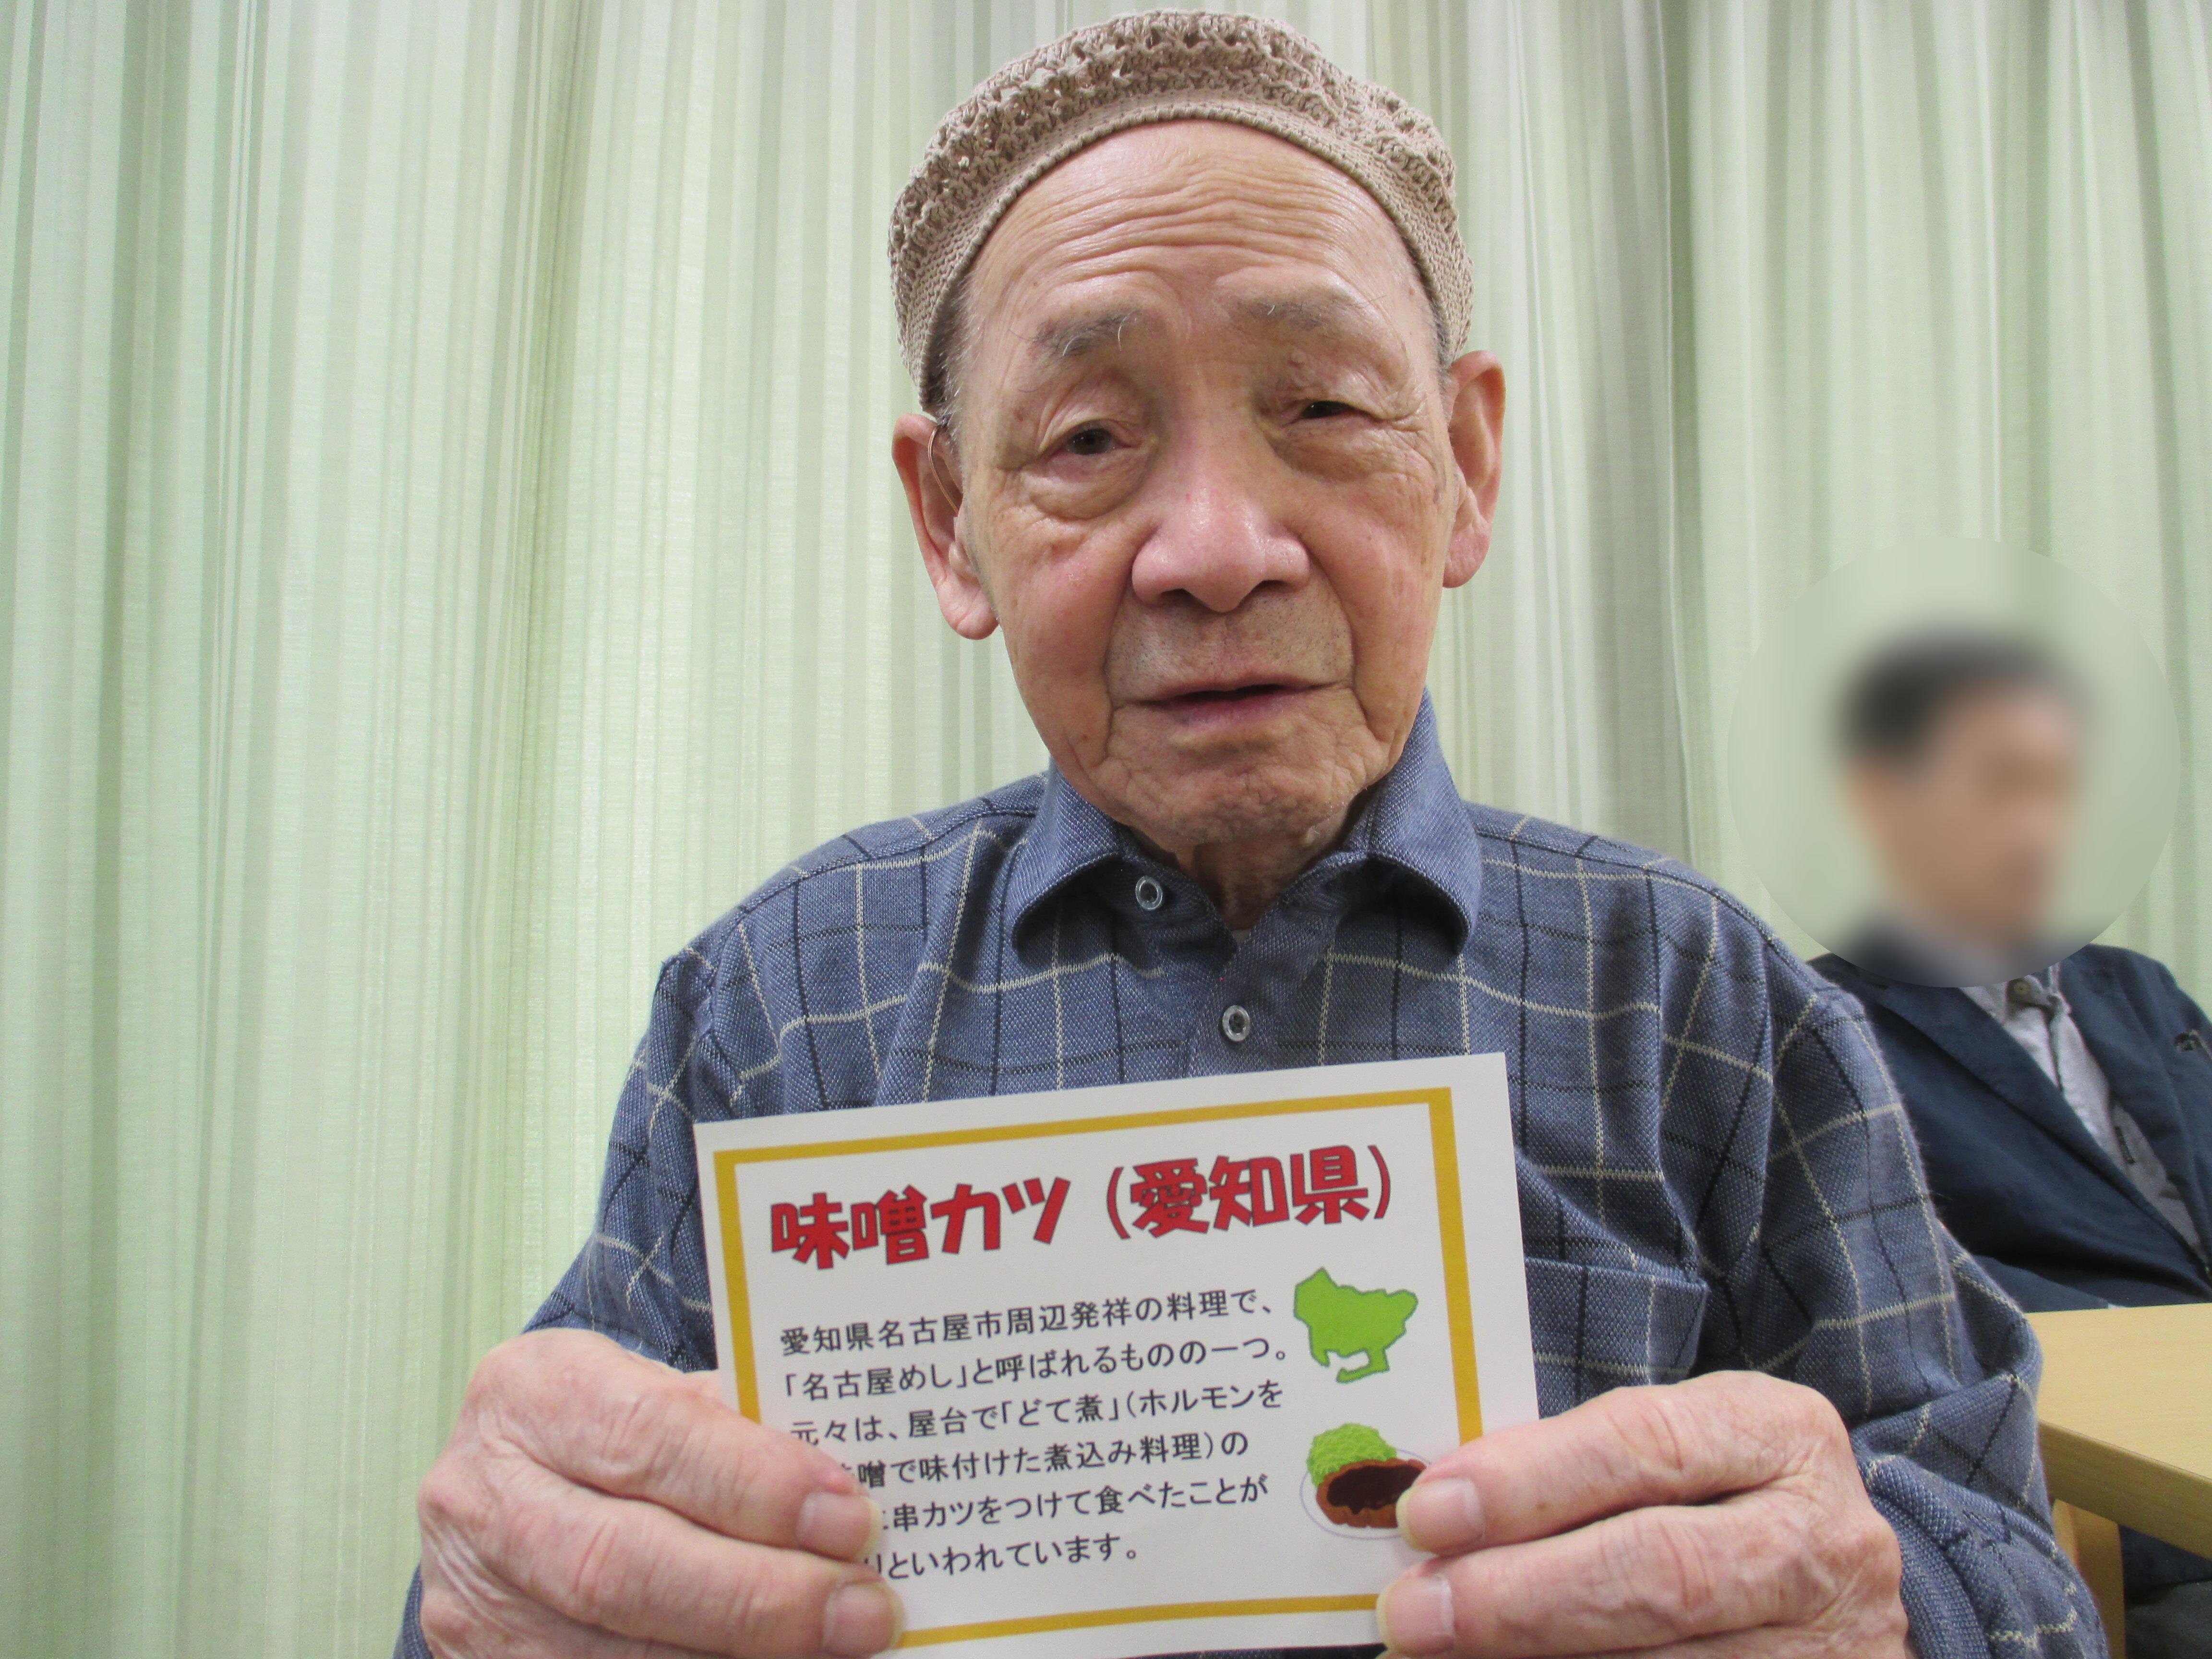 味噌カツ（愛知県）
愛知県名古屋市周辺発祥の料理で、
「名古屋めし」と呼ばれるものの一つ。
元々は、屋台で「どて煮」（ホルモンを
噌で味付けた煮込み料理）の
串カツをつけて食べたことが
りといわれています。